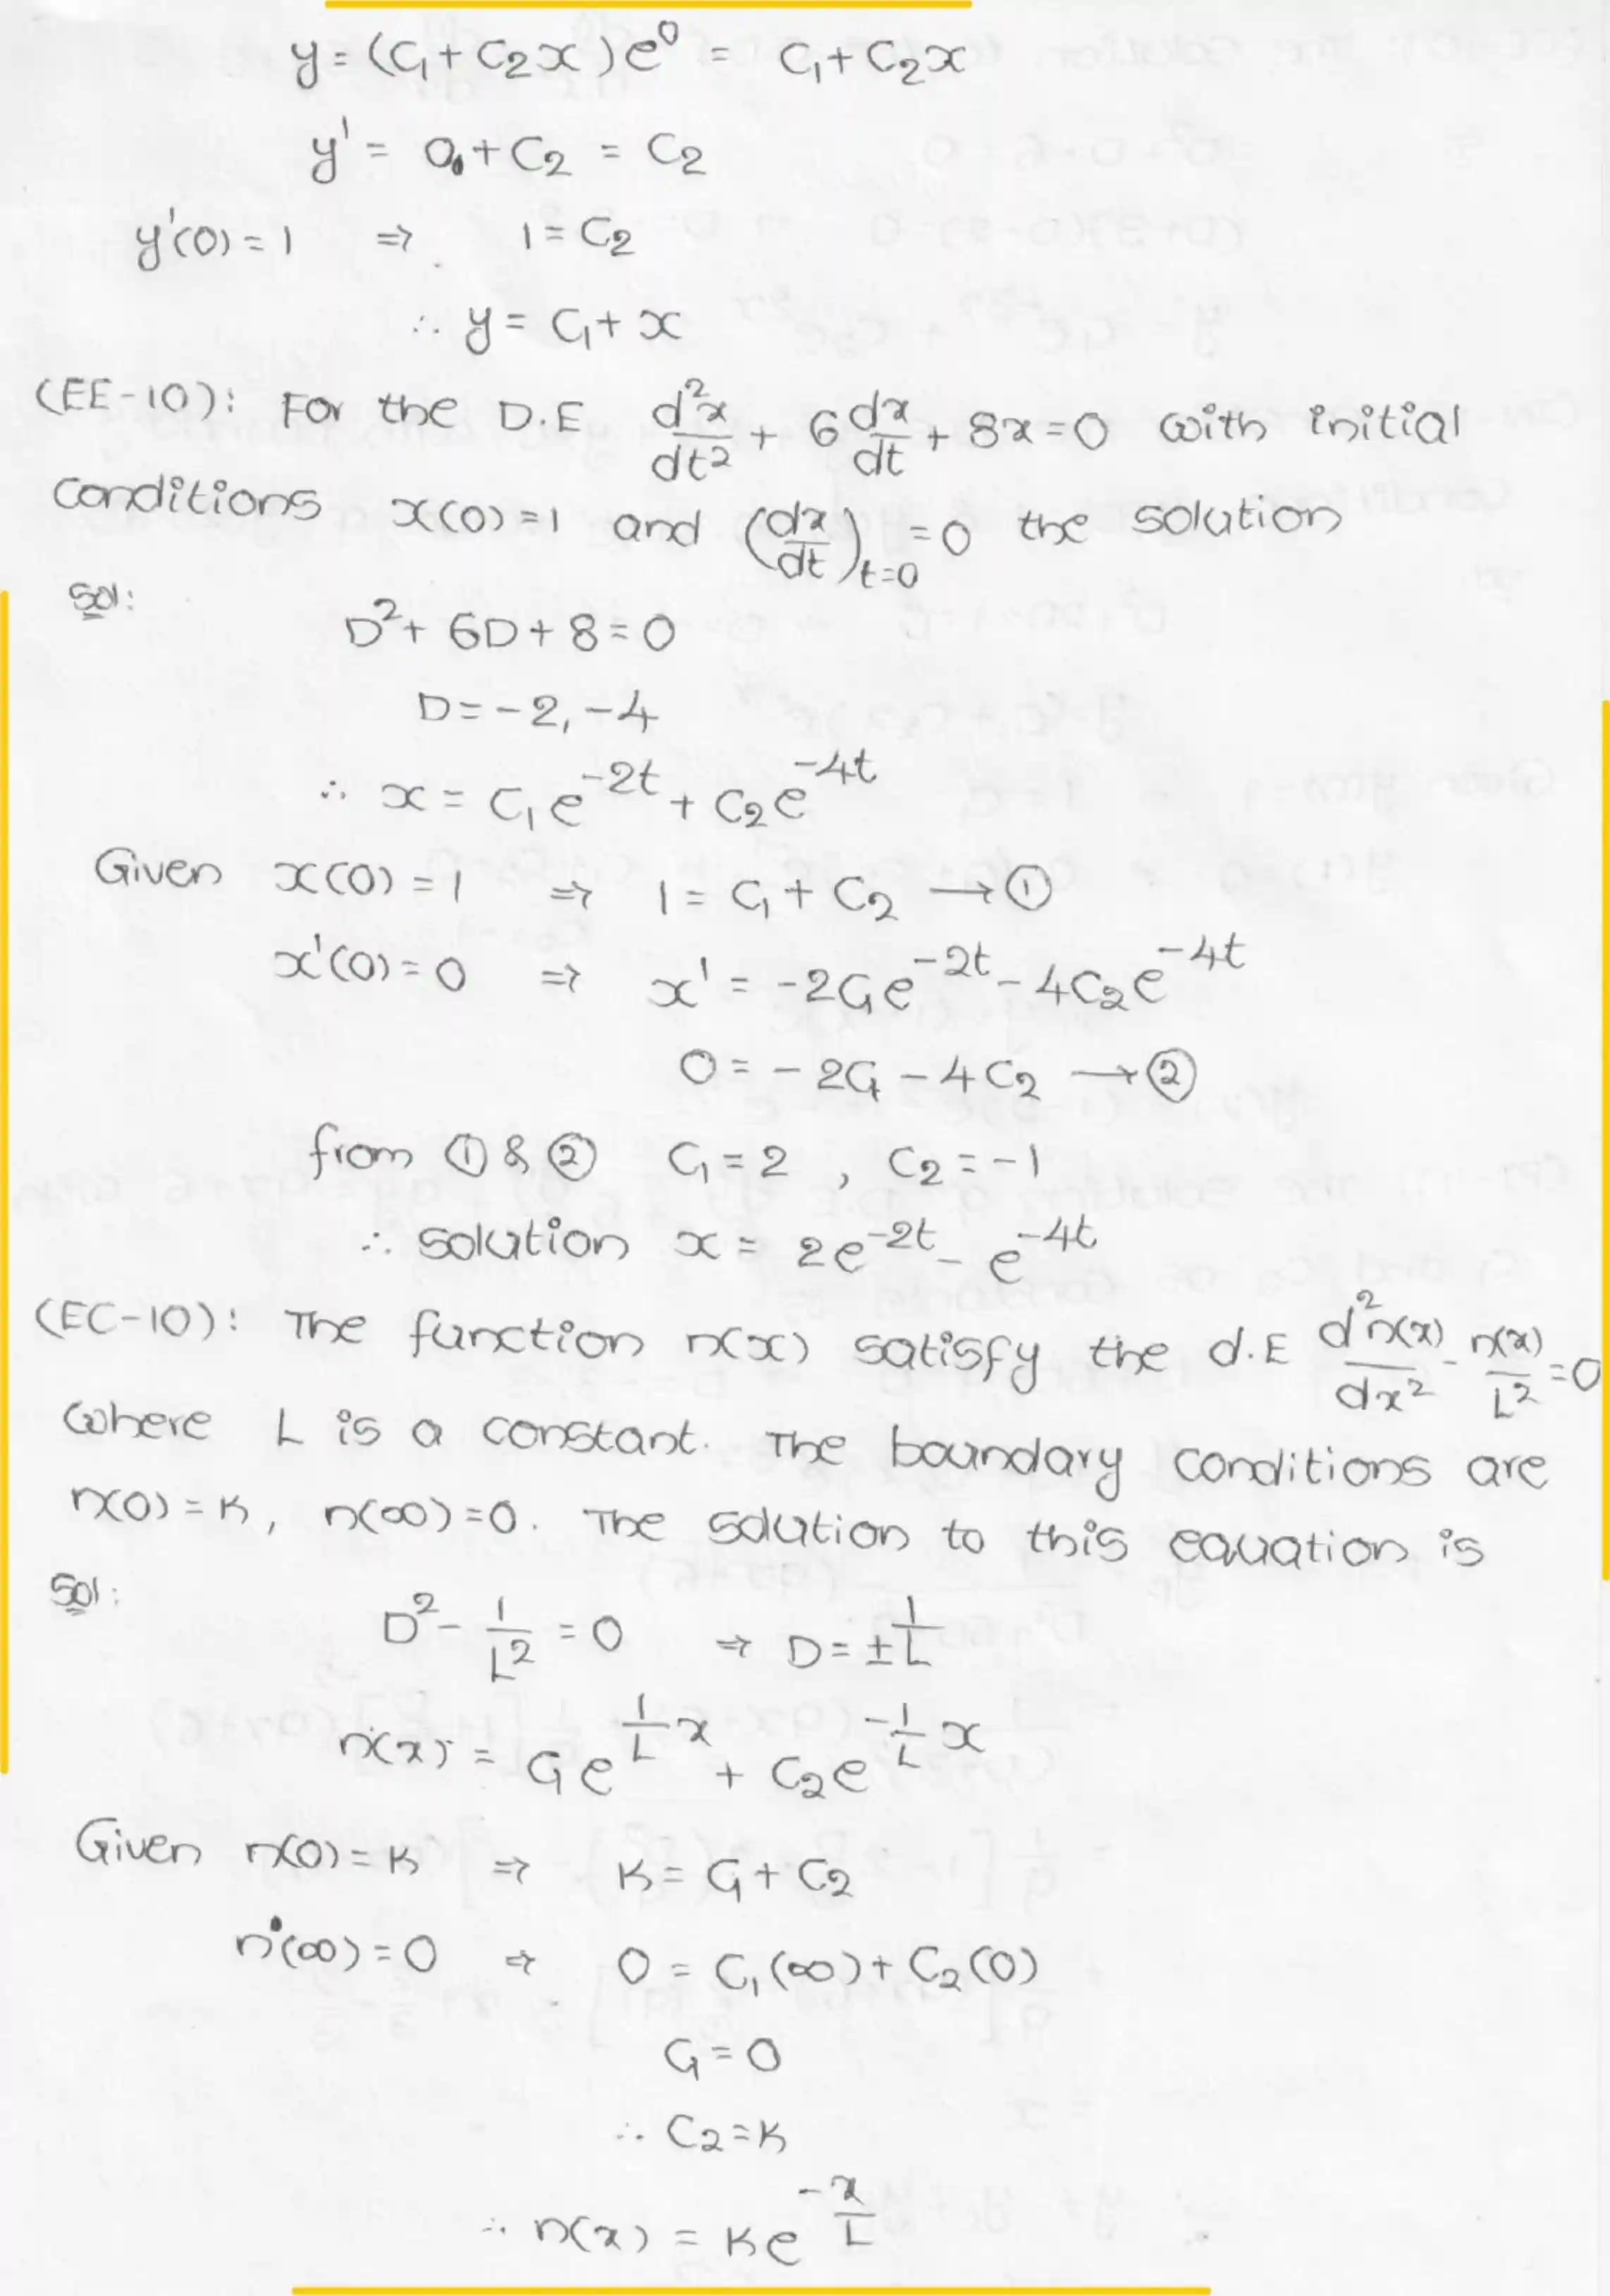 y = (C₁ + C₂x)e⁰ = C₁ + C₂x
y' = 0 + C₂ = C₂
y'(0) = 1 ⇒ 1 = C₂
∴ y = C₁ + x
(EE-10): For the D.E d²x/dt² + 6 dx/dt + 8x = 0 with initial
conditions x(0) = 1 and (dx/dt)ₜ₌₀ = 0 the solution
Sol:
D² + 6D + 8 = 0
D = -2, -4
∴ x = C₁e^(-2t) + C₂e^(-4t)
Given x(0) = 1 ⇒ 1 = C₁ + C₂ → ①
x'(0) = 0 ⇒ x' = -2C₁e^(-2t) - 4C₂e^(-4t)
0 = -2C₁ - 4C₂ → ②
from ① & ② C₁ = 2 , C₂ = -1
∴ solution x = 2e^(-2t) - e^(-4t)
(EC-10): The function n(x) satisfy the d.E d²n(x)/dx² - n(x)/L² = 0
where L is a constant. The boundary conditions are
n(0) = K, n(∞) = 0. The solution to this equation is
Sol:
D² - 1/L² = 0 ⇒ D = ± 1/L
n(x) = C₁e^(1/L x) + C₂e^(-1/L x)
Given n(0) = K ⇒ K = C₁ + C₂
n(∞) = 0 ⇒ 0 = C₁(∞) + C₂(0)
C₁ = 0
∴ C₂ = K
∴ n(x) = Ke^(-x/L)